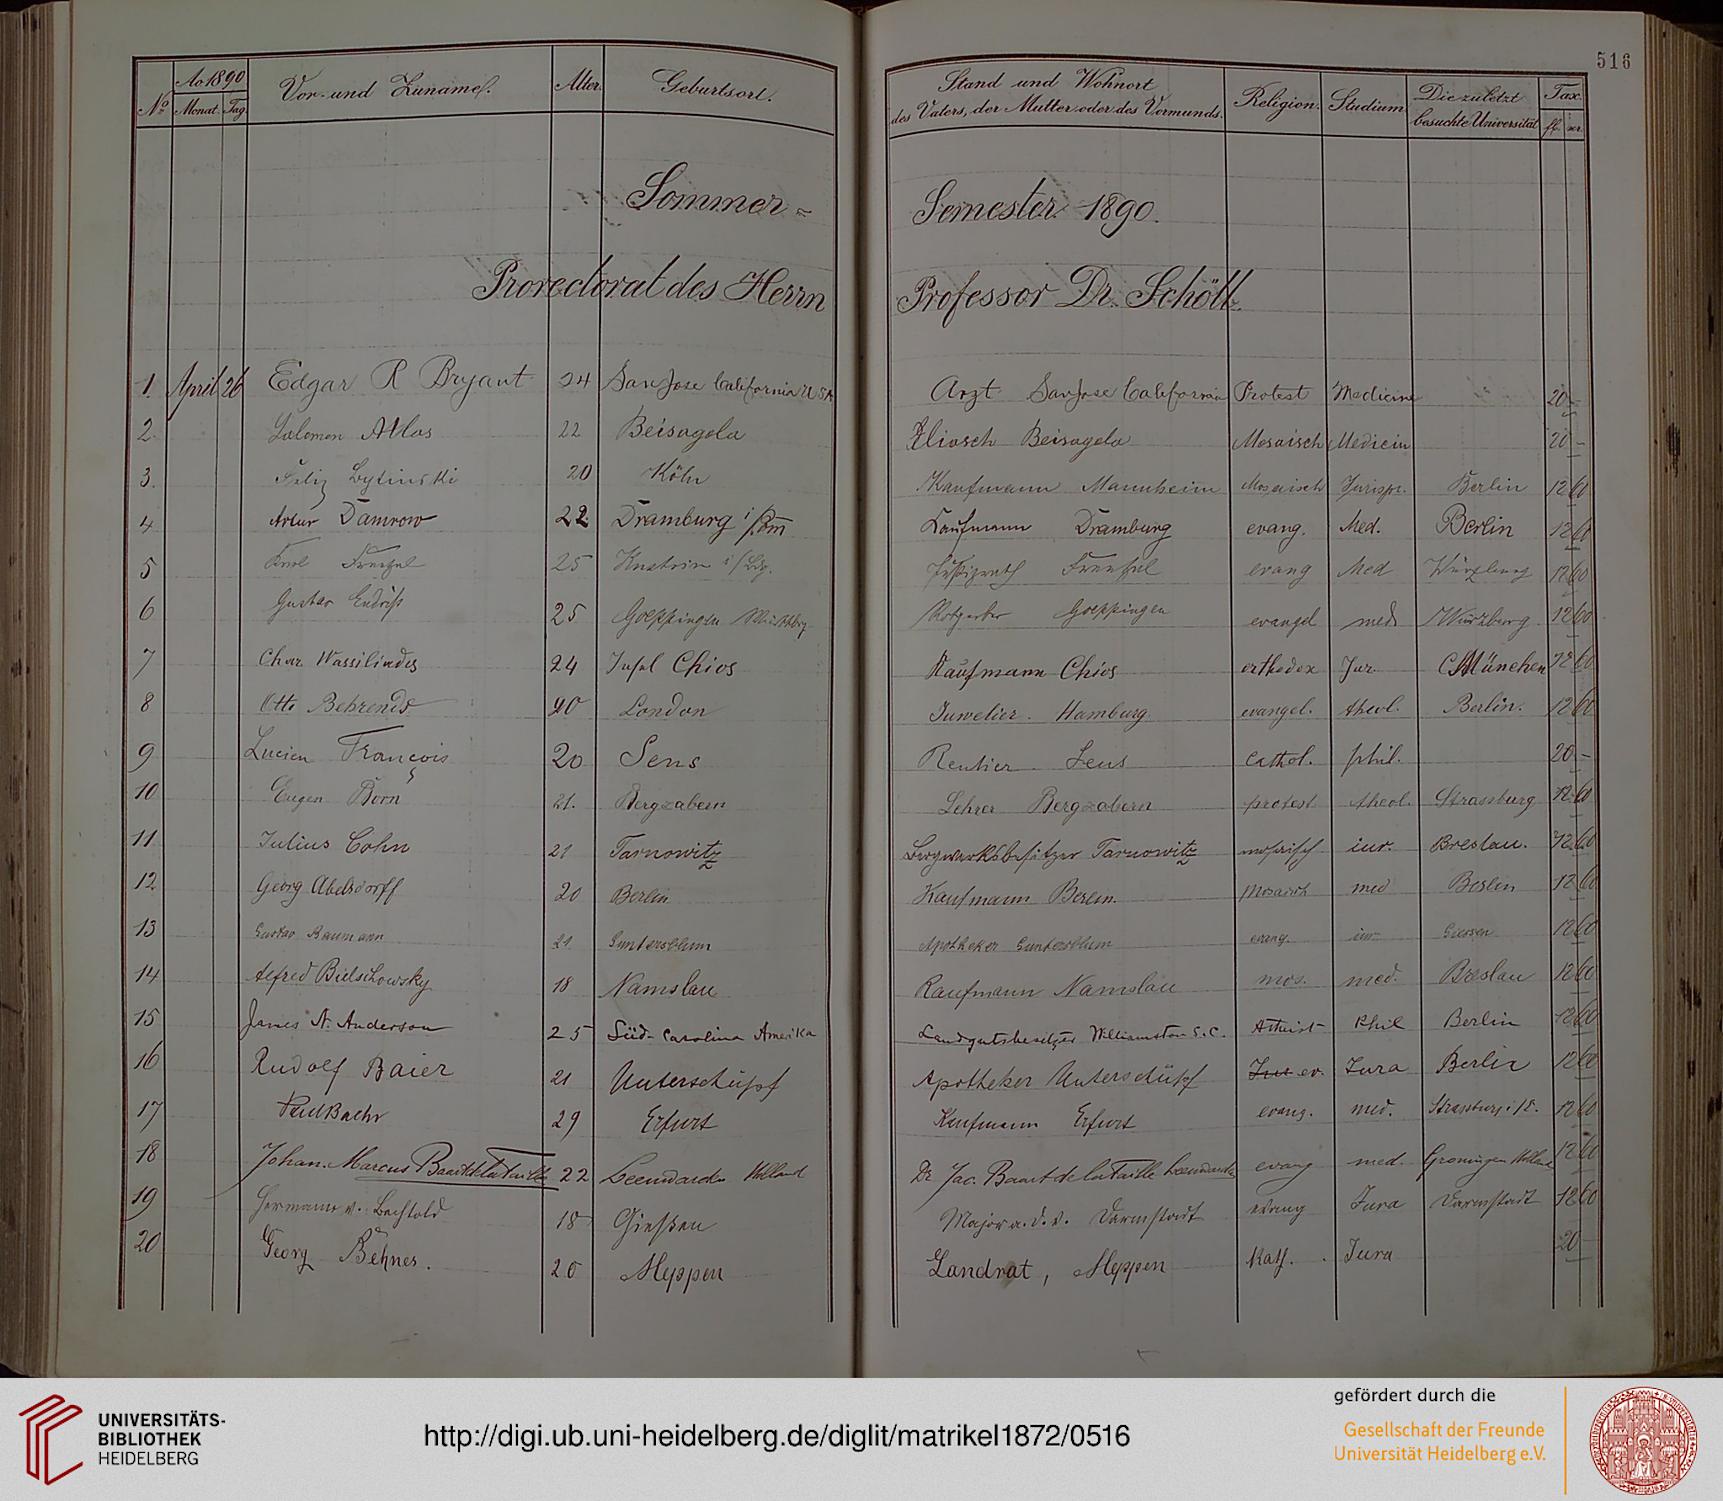 516
No Ao 1890 Monat. Tag. Vor- und Zuname. Alter. Geburtsort. Stand und Wohnort des Vaters, der Mutter oder des Vormunds. Religion. Studium. Die zuletzt besuchte Universität Tax. fl. xr.
Sommer= Semester 1890.
Prorectorat des Herrn Professor Dr. Schöll.
1. April 26 Edgar R Bryant 24 San Jose California USA Arzt San Jose California Protest Medicine 20 -
2. Salomon Atlas 22 Beisagola Eliasch Beisagola Mosaisch Medicin 20 -
3. Felix Köln 20 Kaufmann Mannheim Mosaisch Jurispr. Berlin 12 60
4 Artur Damrow 22 Dramburg i/Pom Kaufmann Dramburg evang. Med. Berlin 12 60
5 Karl Fraenzel 25 Kustrin evang Med Würzburg 12 60
6 Gustav Endriß 25 Goeppingen Goeppingen evangel med Würzburg 12 60
7 Char. Wassiliades 24 Insel Chios Kaufmann Chios orthodox Jur. München 12 60
8 Otto Behrends 20 London Juwelier. Hamburg evangel. theol. Berlin. 12 60
9 Lucien François 20 Sens Rentier Sens cathol. phil. 20 -
10 Eugen Born 21. Bergzabern Lehrer Bergzabern protest theol. Strassburg 12 60
11 Julius Cohn 21 Tarnowitz Bergwerksbesitzer Tarnowitz mosaisch iur. Breslau. 12 60
12 Georg Abelsdorff 20 Berlin Kaufmann Berlin. Mosaisch med Berlin 12 60
13 Gustav Baumann 21 Guntersblum Apotheker Guntersblum evang. iur. Giessen 12 60
14 Alfred Bielschowsky 18 Namslau Kaufmann Namslau mos. med. Breslau 12 60
15 James N. Anderson 25 Süd-Carolina Amerika Landgutsbesitzer Williamston S.C. Atheist Phil Berlin 12 60
16 Rudolf Baier 21 Unterschüpf Apotheker Unterschüpf ev. Jura Berlin 12 60
17 Paul Baehr 29 Erfurt Kaufmann Erfurt evang. med. Strassburg i/E. 12 60
18 Johan. Marcus Baart de la Faille 22 Leeuwarden Holland Dr Jac. Baart de la Faille Leeuwarden evang med. Groningen Holland 12 60
19 Hermann v. Bechtold 18 Gießen Major a. D. Darmstadt evang Jura Darmstadt 12 60
20 Georg Behnes. 20 Meppen Landrat, Meppen Kath. Jura 20 -
UNIVERSITÄTS-
BIBLIOTHEK
HEIDELBERG
http://digi.ub.uni-heidelberg.de/diglit/matrikel1872/0516
gefördert durch die
Gesellschaft der Freunde
Universität Heidelberg e.V.